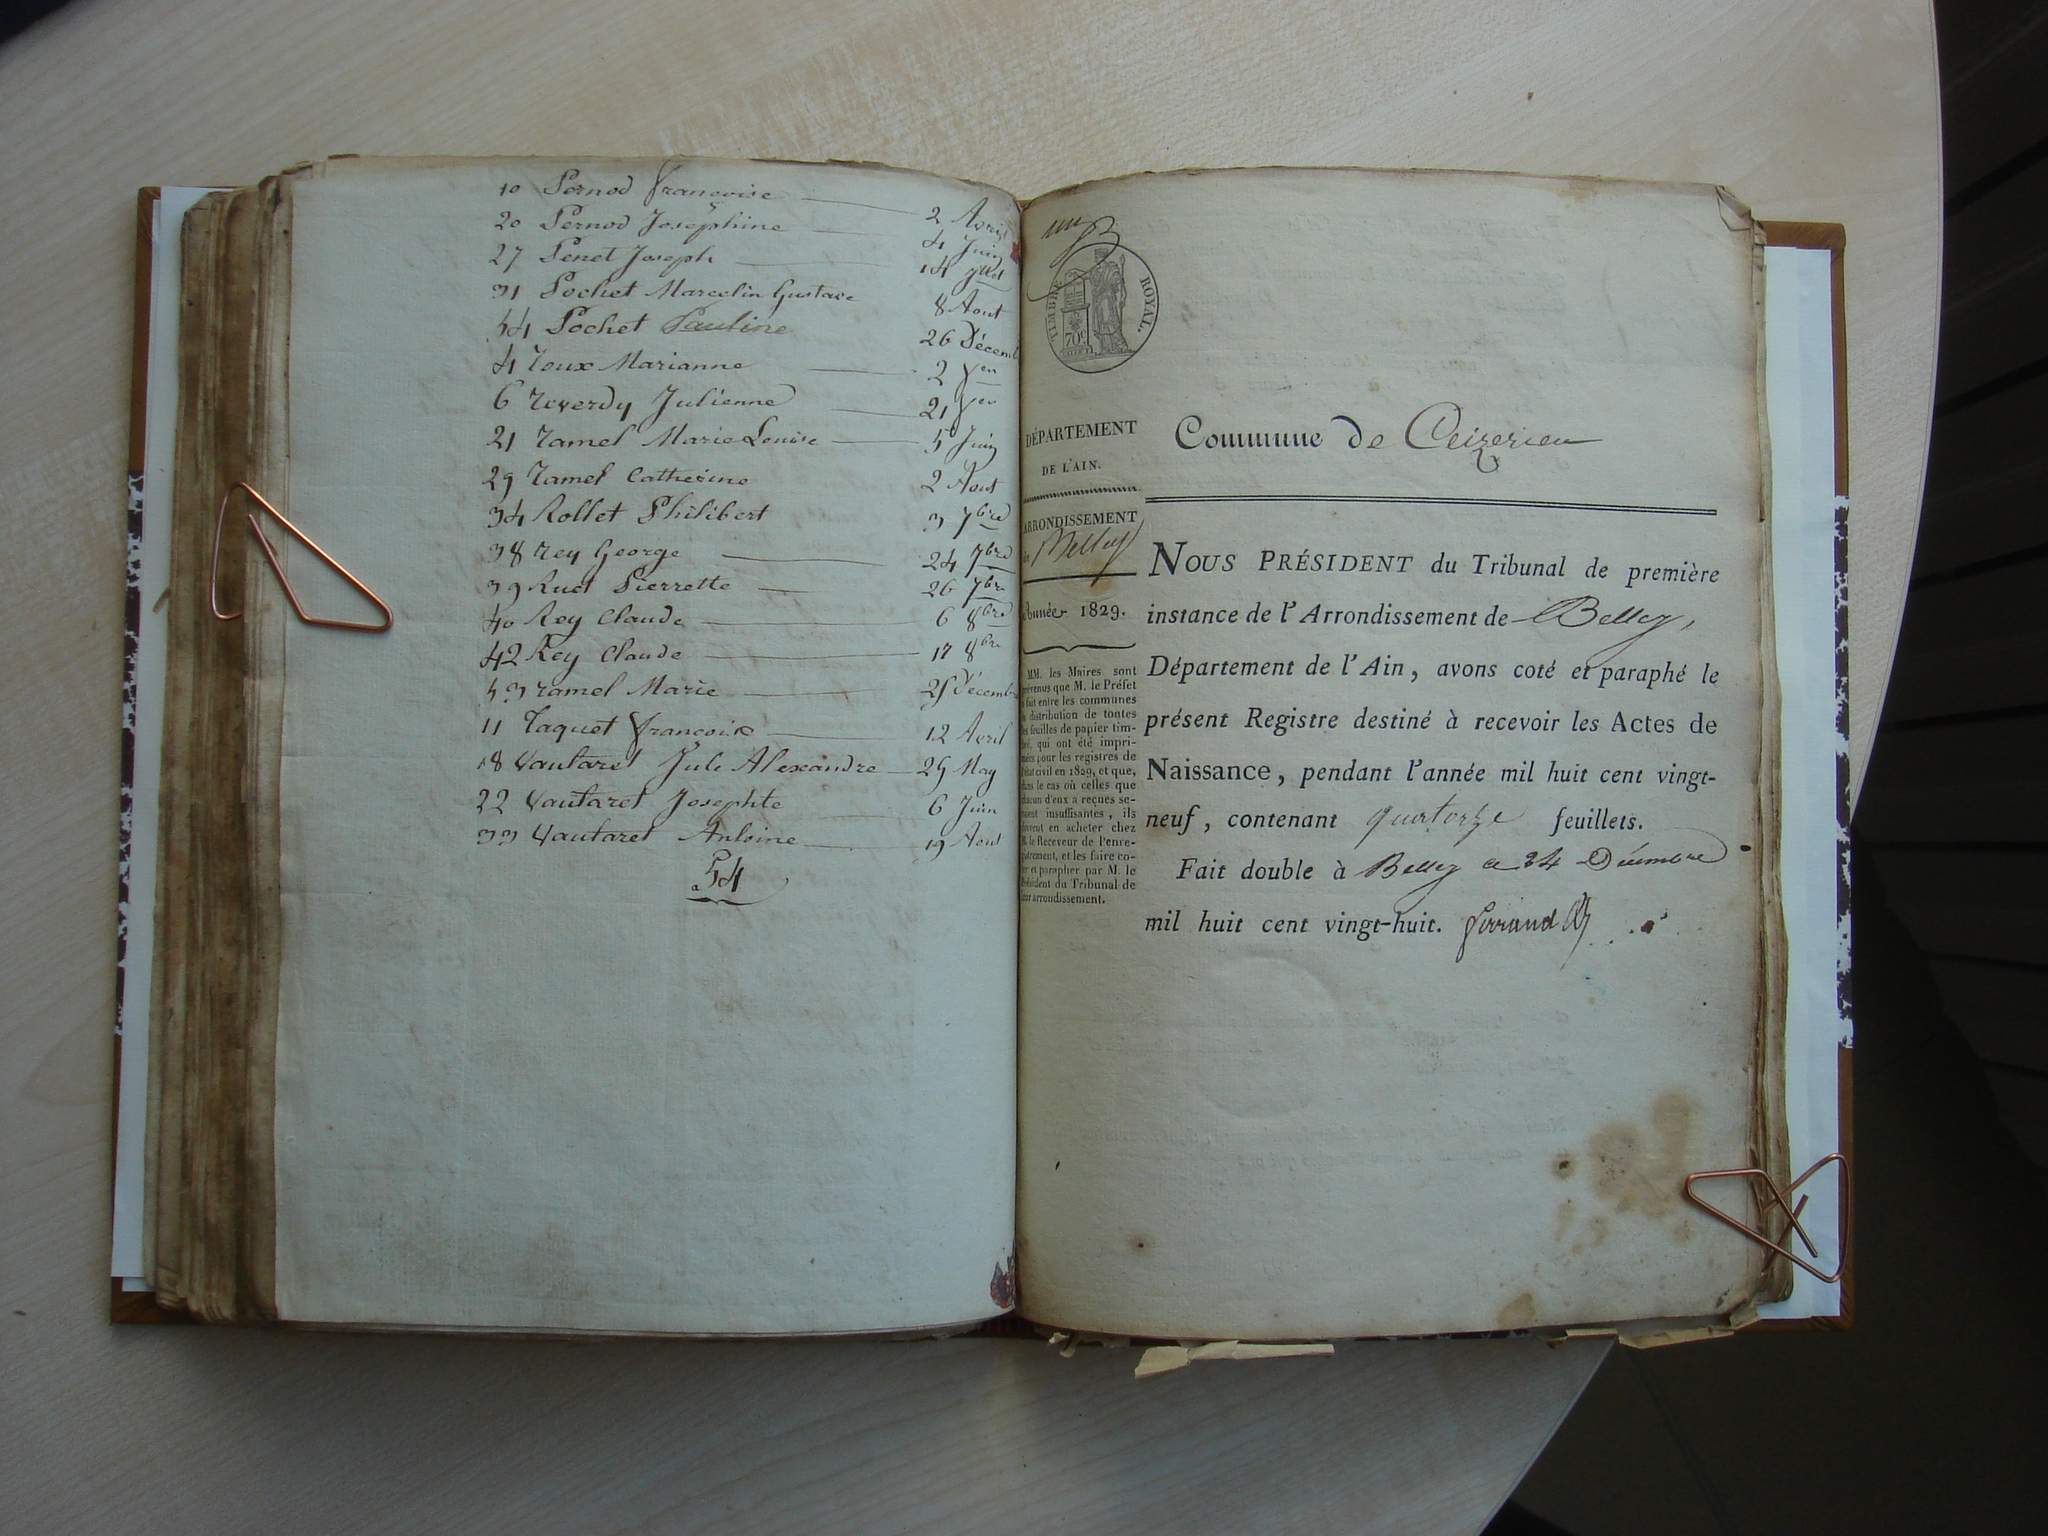 10 Pernod Françoise 2 Avril
20 Pernod Josephine 4 Juin
27 Penet Joseph 14 Jllet
31 Pochet Marcelin Gustave 8 Aout
44 Pochet Pauline 26 Décemb
4 roux Marianne 2 Ver
6 reverdy Julienne 21 Ver
21 ramel Marie Louise 5 Juin
29 ramel Catherine 2 Aout
34 Rollet Philibert 3 7bre
38 rey George 24 7bre
39 Ruet Pierrette 26 7bre
40 Rey Claude 6 8bre
42 Rey Claude 17 8bre
43 ramel Marie 25 Décembre
11 Taquet françoise 12 Avril
18 Vautaret Jule Alexandre 29 May
22 Vautaret Josephte 6 Juin
33 Vautaret Antoine 19 Aout
54
un
TIMBRE ROYAL.
70c
DÉPARTEMENT
DE L'AIN.
ARRONDISSEMENT
de Belley
Année 1829.
MM. les Maires sont
prévenus que M. le Préfet
a fait entre les communes
la distribution de toutes
les feuilles de papier tim-
bré, qui ont été impri-
mées pour les registres de
l'état civil en 1829, et que,
dans le cas où celles que
chacun d'eux a reçues se-
raient insuffisantes, ils
doivent en acheter chez
M. le Receveur de l'enre-
gistrement, et les faire co-
ter et parapher par M. le
Président du Tribunal de
leur arrondissement.
Commune de Ceizerieu
NOUS PRÉSIDENT du Tribunal de première
instance de l'Arrondissement de Belley,
Département de l'Ain, avons coté et paraphé le
présent Registre destiné à recevoir les Actes de
Naissance, pendant l'année mil huit cent vingt-
neuf, contenant quatorze feuillets.
Fait double à Belley ce 24 Décembre
mil huit cent vingt-huit. ferrand